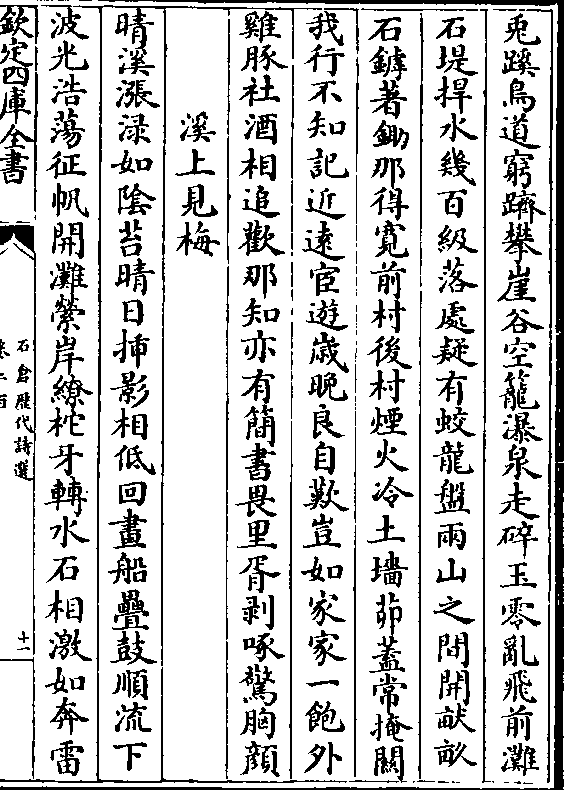 兎蹊鳥道窮躋攀崖谷空籠瀑泉走碎玉零亂飛前灘
石堤捍水幾百級落處疑有蛟龍盤兩山之間開畎畝
石鏬著鋤那得寛前村後村煙火冷土墻茆蓋常掩關
我行不知記近逺宦遊嵗晚良自歎豈如家家一飽外
雞豚社酒相追歡那知亦有簡書畏里胥剥啄驚胸顔
溪上見梅
晴溪漲渌如陰苔晴日揷影相低回畫船疊鼓順流下
波光浩蕩征帆開灘縈岸繚柁牙轉水石相激如奔雷
欽定四庫全書
石倉歴代詩選
十一